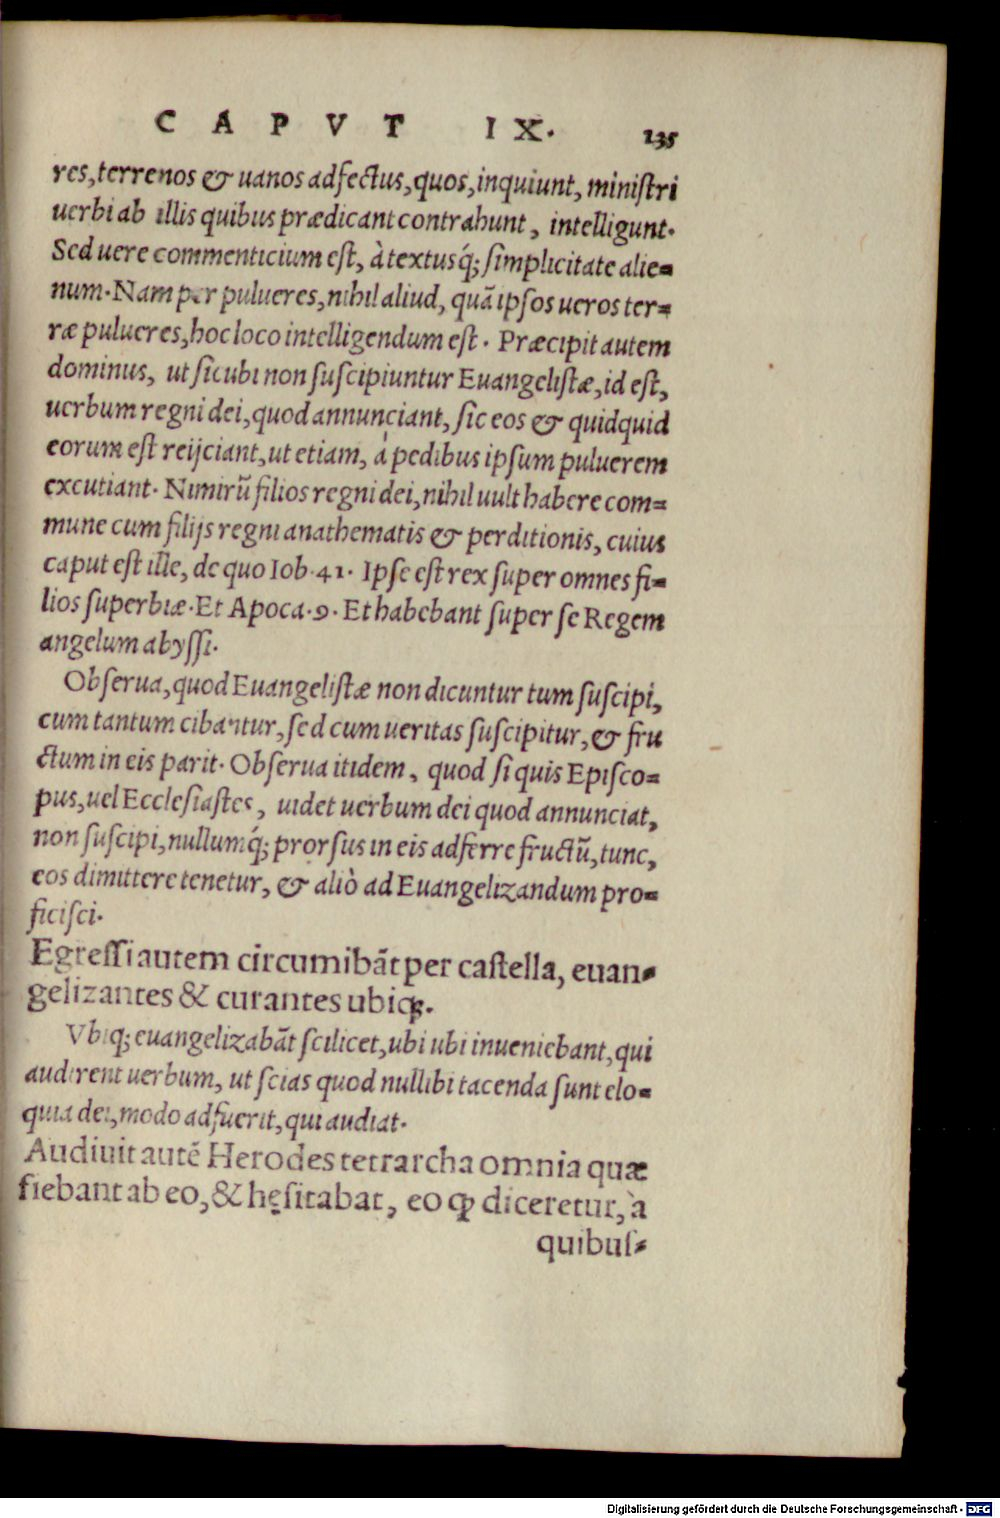 CAPVT IX. 135
res, terrenos & uanos adfectus, quos, inquiunt, ministri
uerbi ab illis quibus prædicant contrahunt, intelligunt.
Sed uere commenticium est, à textusq́; simplicitate alie=
num. Nam per pulueres, nihil aliud, quã ipsos ueros ter=
ræ pulueres, hoc loco intelligendum est. Præcipit autem
dominus, ut sicubi non suscipiuntur Euangelistæ, id est,
uerbum regni dei, quod annunciant, sic eos & quidquid
eorum est reijciant, ut etiam, à pedibus ipsum puluerem
excutiant. Nimirũ filios regni dei, nihil uult habere com=
mune cum filijs regni anathematis & perditionis, cuius
caput est ille, de quo Iob. 41. Ipse est rex super omnes fi=
lios superbiæ. Et Apoca. 9. Et habebant super se Regem
angelum abyssi.
Obserua, quod Euangelistæ non dicuntur tum suscipi,
cum tantum cibantur, sed cum ueritas suscipitur, & fru
ctum in eis parit. Obserua itidem, quod si quis Episco=
pus, uel Ecclesiastes, uidet uerbum dei quod annunciat,
non suscipi, nullumq́; prorsus in eis adferre fructũ, tunc,
eos dimittere tenetur, & aliò ad Euangelizandum pro=
ficisci.
Egressi autem circumibãt per castella, euan=
gelizantes & curantes ubiq;.
Vbiq; euangelizabãt scilicet, ubi ubi inueniebant, qui
audirent uerbum, ut scias quod nullibi tacenda sunt elo=
quia dei, modo adfuerit, qui audiat.
Audiuit autẽ Herodes tetrarcha omnia quæ
fiebant ab eo, & hęsitabat, eo ꝙ diceretur, à
quibus=
Digitalisierung gefördert durch die Deutsche Forschungsgemeinschaft - DFG